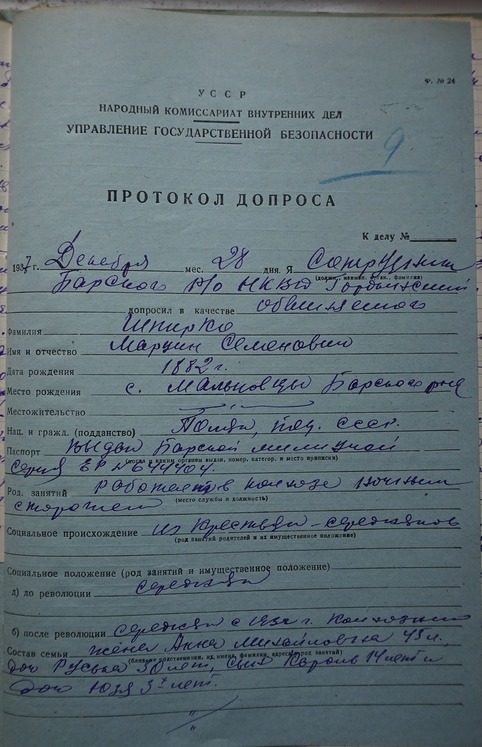 Ф. № 24
УССР
НАРОДНЫЙ КОМИССАРИАТ ВНУТРЕННИХ ДЕЛ
УПРАВЛЕНИЕ ГОСУДАРСТВЕННОЙ БЕЗОПАСНОСТИ
9
ПРОТОКОЛ ДОПРОСА
К делу №
1937 г. Декабря мес. 28 дня. Я Сотрудник
Барского Р/о НКВД
допросил в качестве обвиняемого
Фамилия Шпирко
Имя и отчество Марцин Семенович
Дата рождения 1882 г.
Место рождения с. Мальчовцы Барского р-на
Местожительство
Нац. и гражд. (подданство) Поляк под. СССР.
Паспорт выдан Барской милицией
(когда и каким органом выдан, номер, категор. и место приписки)
серия ЕР № 644404.
Род. занятий Работает в колхозе ночным
(место службы и должность)
сторожем
Социальное происхождение из крестьян-середняков
(род занятий родителей и их имущественное положение)
Социальное положение (род занятий и имущественное положение)
а) до революции середняк
б) после революции середняк с 1932 г. Колхозник
Состав семьи жена Анна Михайловна 45 л.
(близкие родственники, их имена, фамилии, адреса, род занятий)
доч Руська 20 лет, сын Кароль 14 лет и
доч Юзя 5 лет.